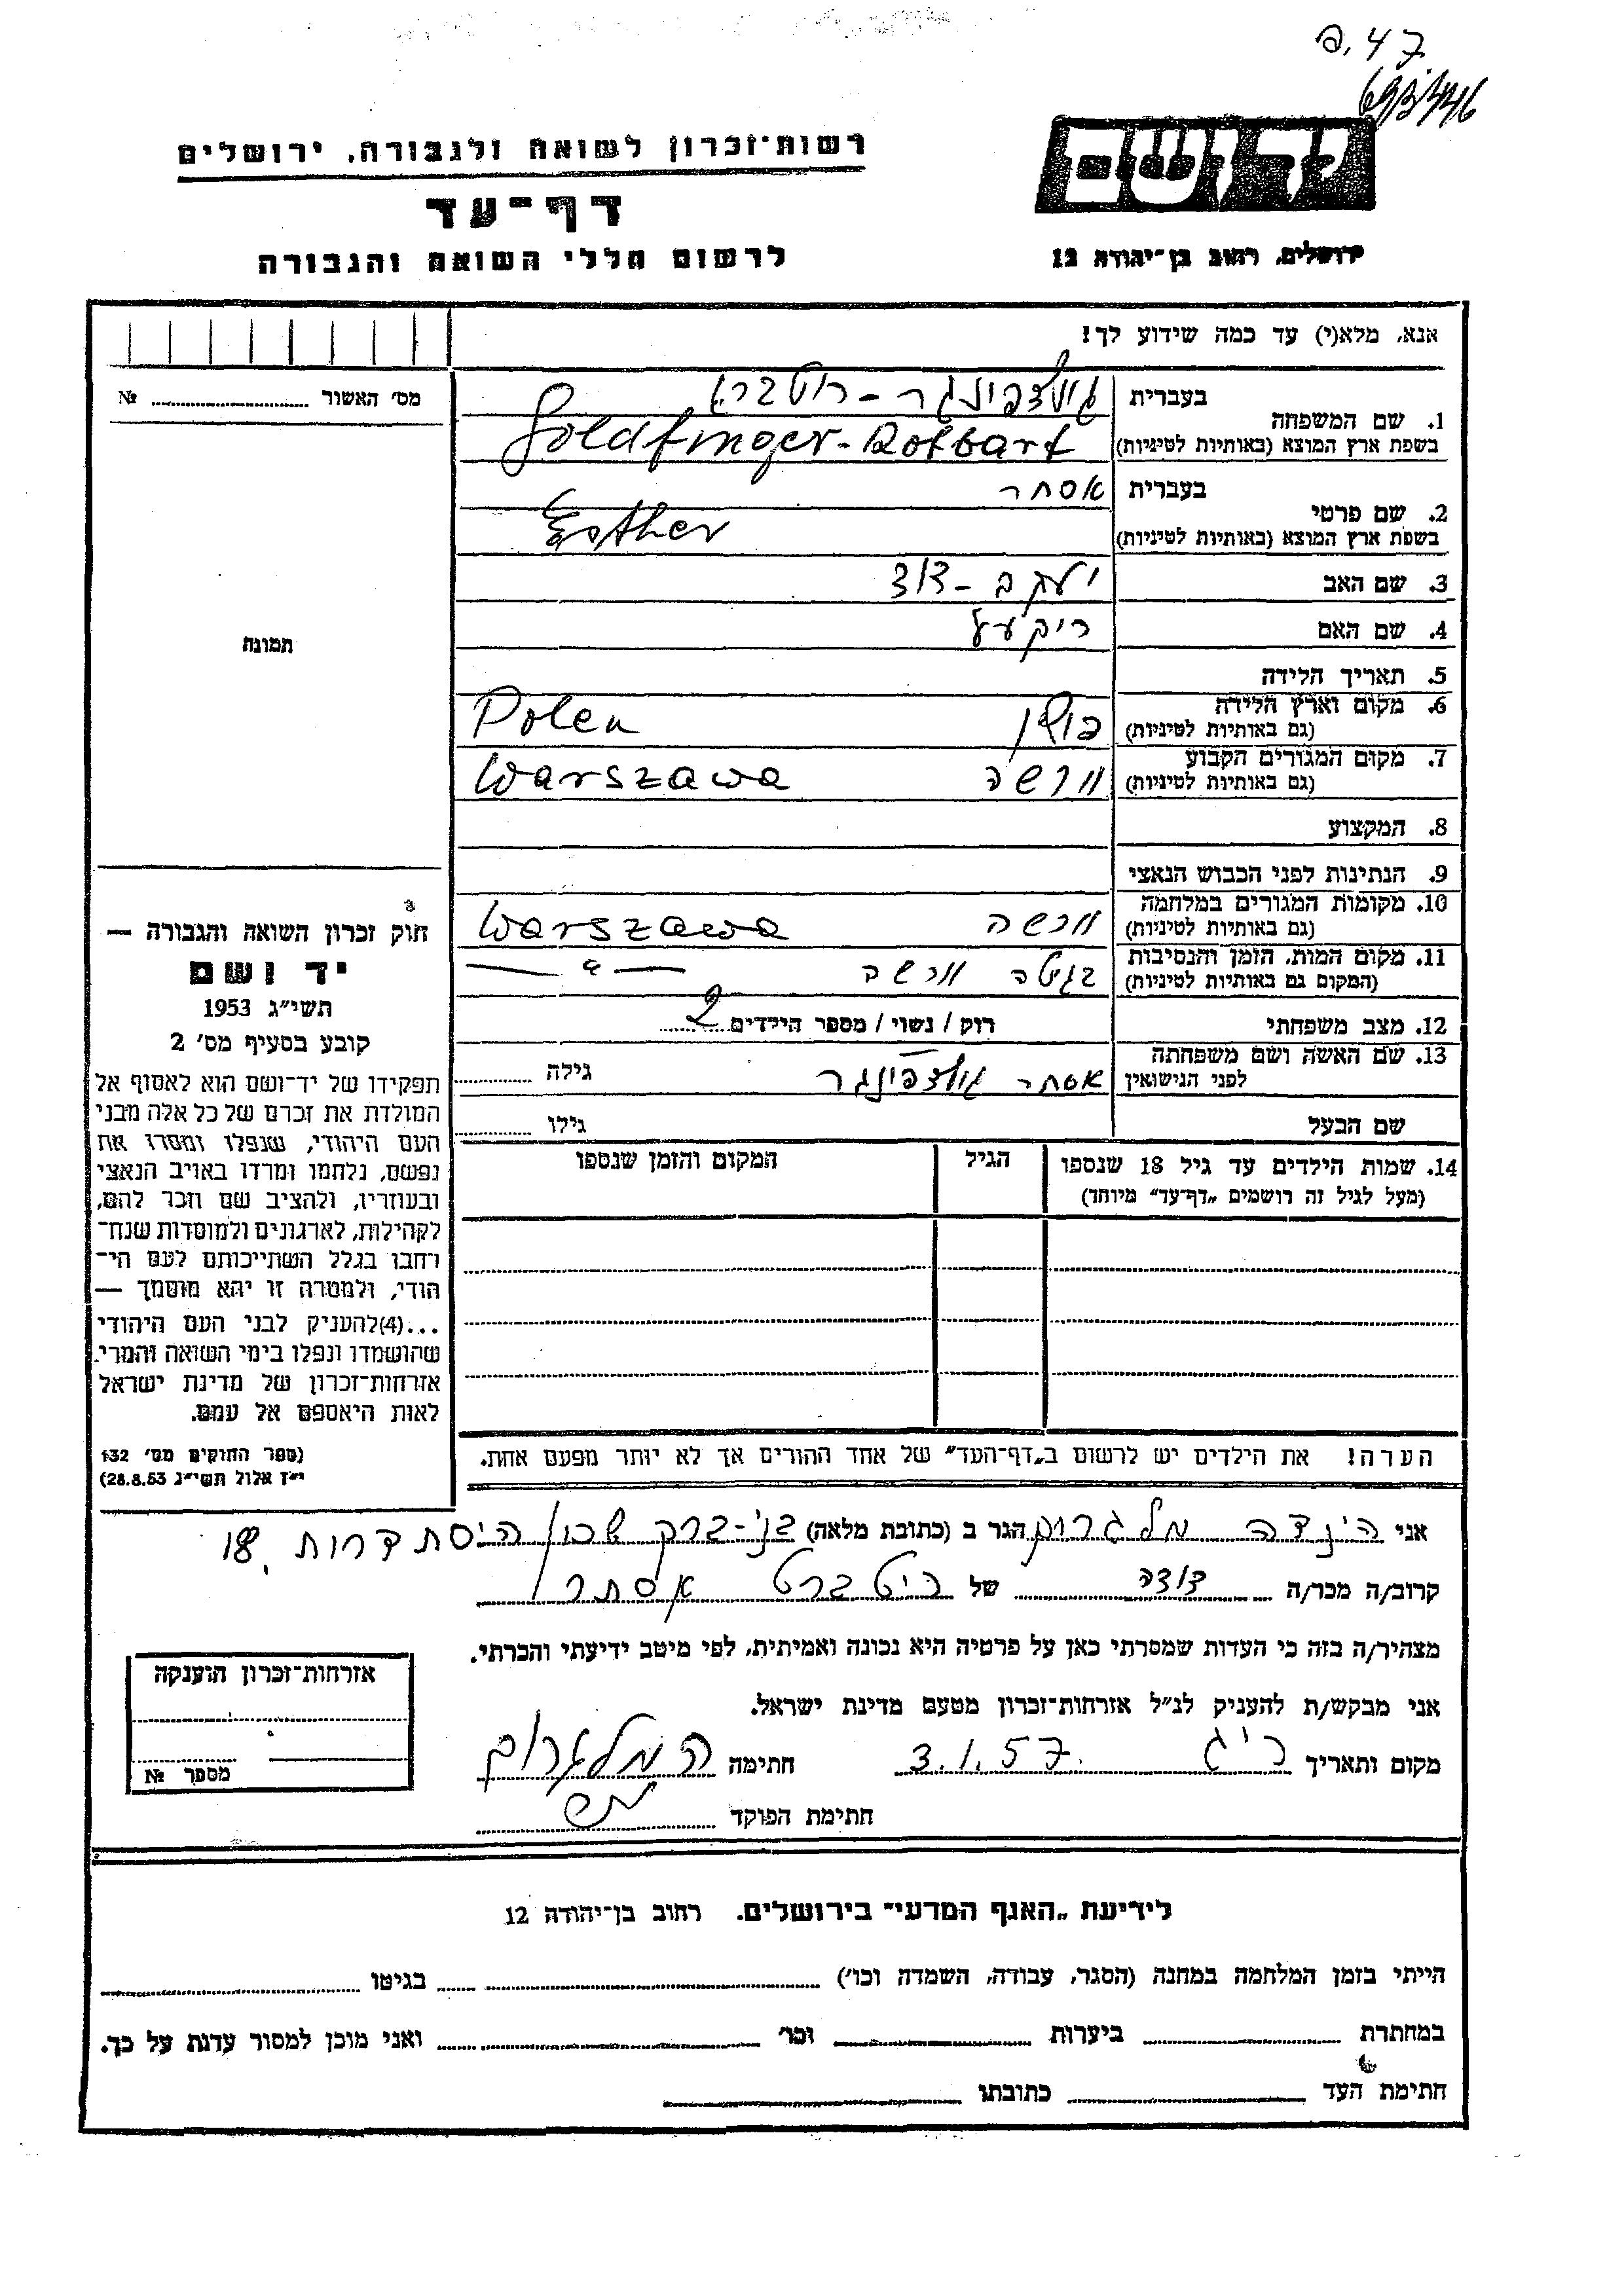 פ. 47
רשות־זכרון לשואה ולגבורה, ירושלים
דף־עד
לרשום חללי השואה והגבורה
יד ושם
ירושלים, רחוב בן־יהודה 12
אנא, מלא(י) עד כמה שידוע לך!
מס׳ האשור № ..........
תמונה
1. שם המשפחה
בעברית גולדפינגר - רוטברט
בשפת ארץ המוצא (באותיות לטיניות) Goldfinger-Rotbart
2. שם פרטי
בעברית אסתר
בשפת ארץ המוצא (באותיות לטיניות) Esther
3. שם האב יעקב - דוד
4. שם האם
5. תאריך הלידה
6. מקום וארץ הלידה
(גם באותיות לטיניות) פולין Polen
7. מקום המגורים הקבוע
(גם באותיות לטיניות) וורשה Warszawa
8. המקצוע
9. הנתינות לפני הכבוש הנאצי
10. מקומות המגורים במלחמה
(גם באותיות לטיניות) וורשה Warszawa
11. מקום המות, הזמן והנסיבות
(המקום גם באותיות לטיניות) בגיטה וורשה — " —
12. מצב משפחתי רוק / נשוי / מספר הילדים 2
13. שם האשה ושם משפחתה
לפני הנישואין אסתר גולדפינגר גילה ..........
שם הבעל גילו ..........
14. שמות הילדים עד גיל 18 שנספו
(מעל לגיל זה רושמים „דף־עד” מיוחד)
הגיל
המקום והזמן שנספו
הערה! את הילדים יש לרשום ב„דף־העד” של אחד ההורים אך לא יותר מפעם אחת.
חוק זכרון השואה והגבורה —
יד ושם
תשי״ג 1953
קובע בסעיף מס׳ 2
תפקידו של יד־ושם הוא לאסוף אל
המולדת את זכרם של כל אלה מבני
העם היהודי, שנפלו ומסרו את
נפשם, נלחמו ומרדו באויב הנאצי
ובעוזריו, ולהציב שם וזכר להם,
לקהילות, לארגונים ולמוסדות שנח־
רחבו בגלל השתייכותם לעם הי־
הודי, ולמטרה זו יהא מוסמך —
...(4)להעניק לבני העם היהודי
שהושמדו ונפלו בימי השואה והמרי
אזרחות־זכרון של מדינת ישראל
לאות היאספם אל עמם.
(ספר החוקים מס׳ 132
י״ז אלול תשי״ג 28.8.53)
אני הינדה מלגרום הגר ב (כתובת מלאה) בני-ברק שכון היסתדרות 18
קרוב/ה מכר/ה דודה של רוטברט אסתר
מצהיר/ה בזה כי העדות שמסרתי כאן על פרטיה היא נכונה ואמיתית, לפי מיטב ידיעתי והכרתי.
אני מבקש/ת להעניק לנ״ל אזרחות־זכרון מטעם מדינת ישראל.
מקום ותאריך ר״ג 3.1.57 חתימה ה מלגרום
חתימת הפוקד
אזרחות־זכרון הוענקה
מספר №
לידיעת „האגף המדעי” בירושלים. רחוב בן־יהודה 12
הייתי בזמן המלחמה במחנה (הסגר, עבודה, השמדה וכו׳) .......... בגיטו ..........
במחתרת .......... ביערות .......... וכו׳ .......... ואני מוכן למסור עדות על כך.
חתימת העד .......... כתובתו ..........